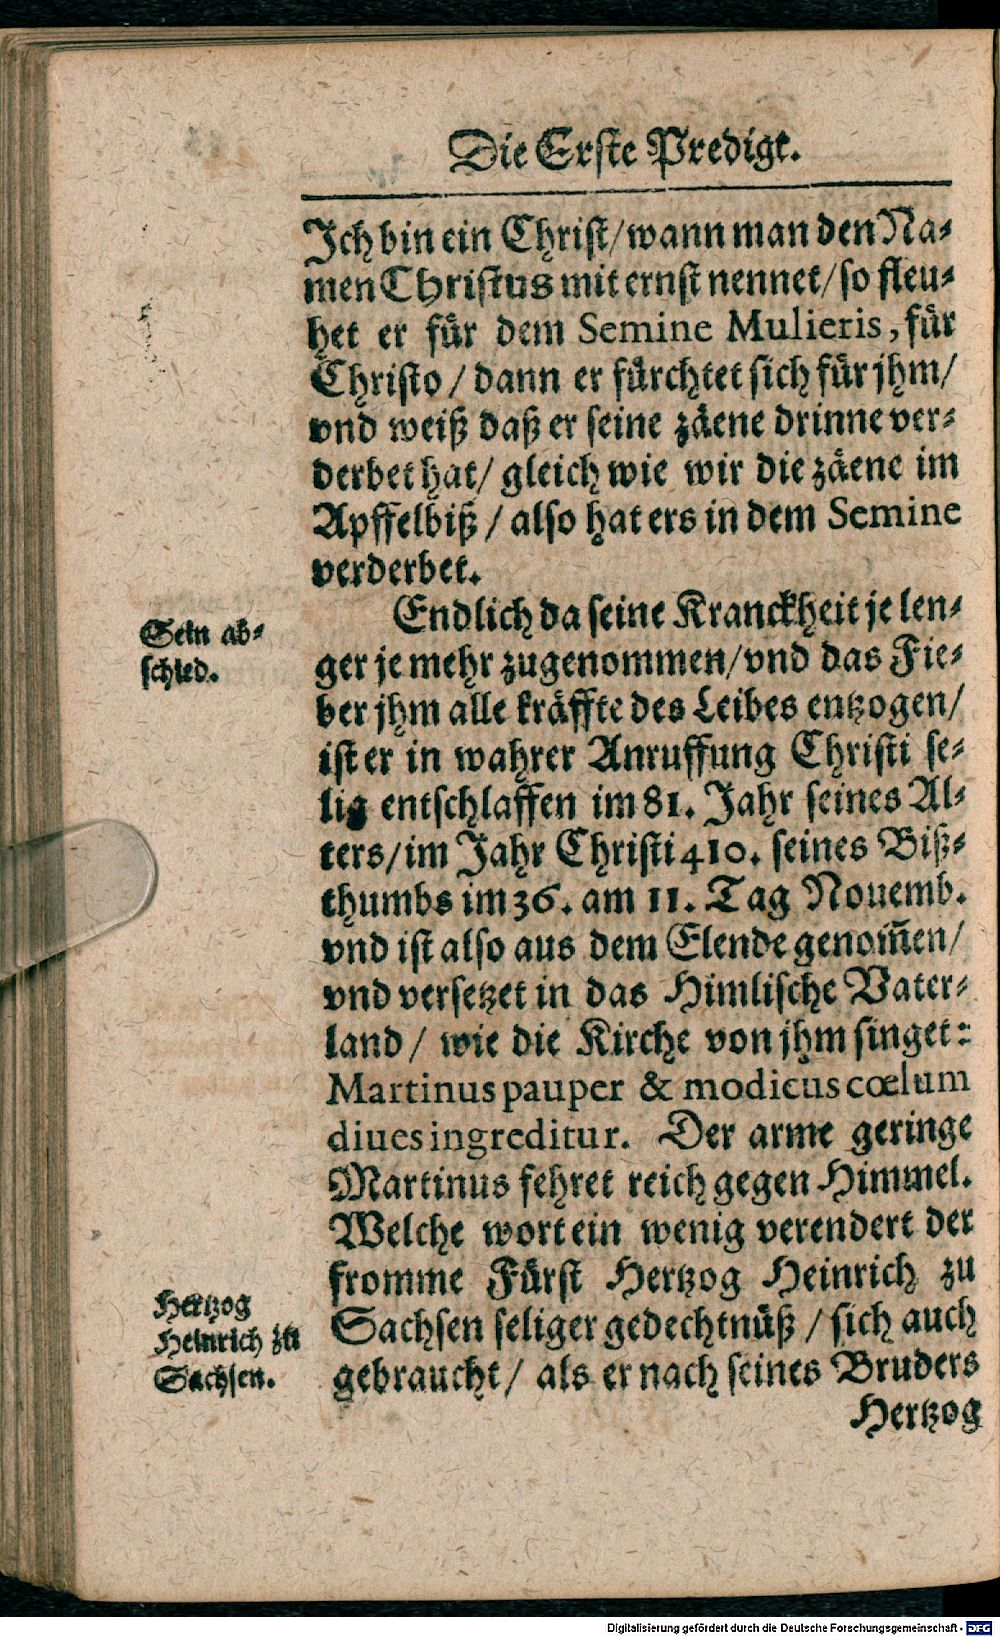 Die Erste Predigt.
Ich bin ein Christ/ wann man den Na-
men Christus mit ernst nennet/ so fleu-
het er für dem Semine Mulieris, für
Christo / dann er fürchtet sich für jhm/
vnd weiß daß er seine zäene drinne ver-
derbet hat/ gleich wie wir die zäene im
Apffelbiß / also hat ers in dem Semine
verderbet.
Endlich da seine Kranckheit je len-
Sein ab-
schied.
ger je mehr zugenommen/ vnd das Fie-
ber jhm alle kräffte des Leibes entzogen/
ist er in wahrer Anruffung Christi se-
lig entschlaffen im 81. Jahr seines Al-
ters/ im Jahr Christi 410. seines Biß-
thumbs im 36. am 11. Tag Nouemb.
vnd ist also aus dem Elende genom̃en/
vnd versetzet in das Himlische Vater-
land / wie die Kirche von jhm singet:
Martinus pauper & modicus cœlum
diues ingreditur. Der arme geringe
Martinus fehret reich gegen Himmel.
Welche wort ein wenig verendert der
fromme Fürst Hertzog Heinrich zu
Hertzog
Heinrich zu
Sachsen.
Sachsen seliger gedechtnüß / sich auch
gebraucht/ als er nach seines Bruders
Hertzog
Digitalisierung gefördert durch die Deutsche Forschungsgemeinschaft - DFG